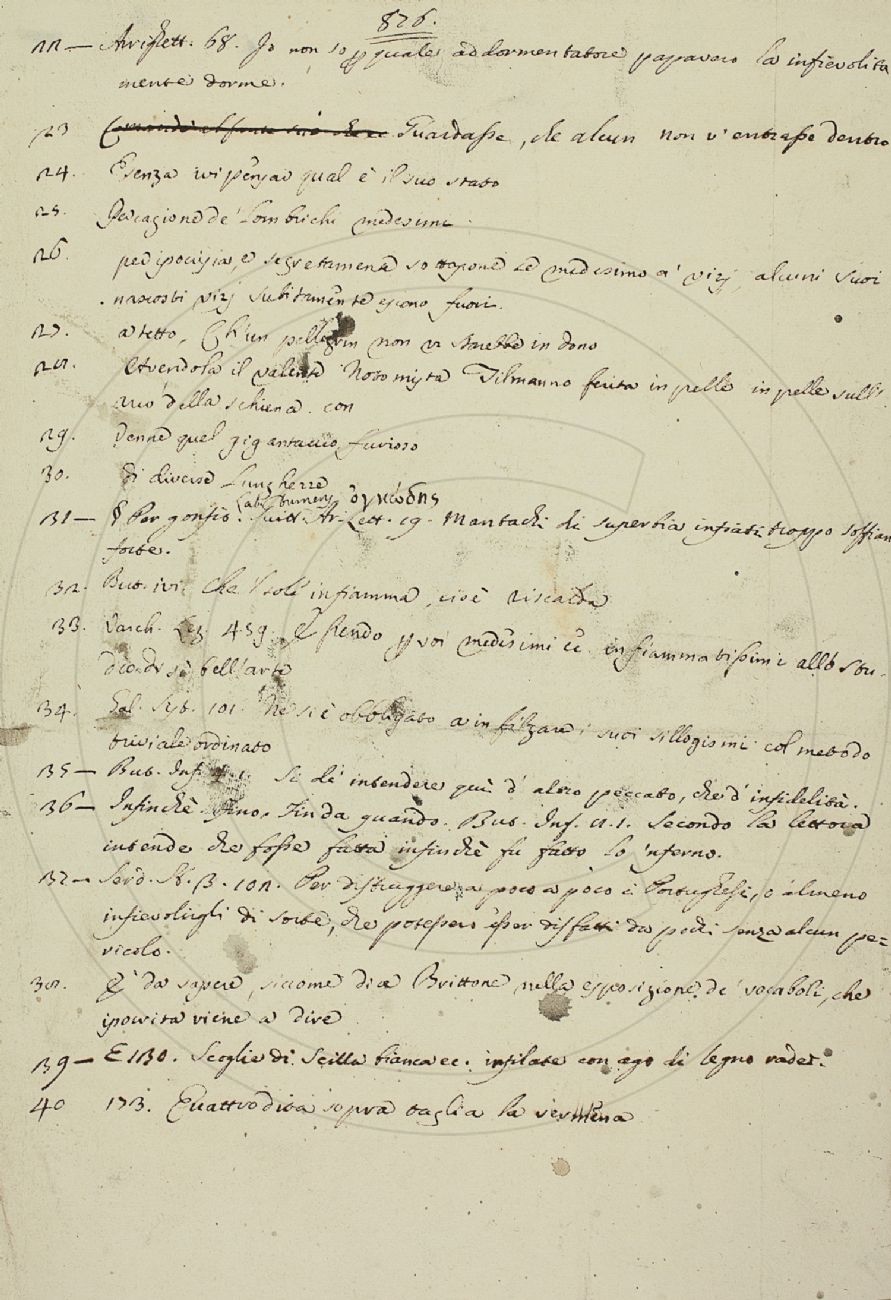 826.
22 — Arrighett. 68. Io non so p quale addormentatore papavero la infievolita
mente dorme.
23 Guardasse, che alcun non v' entrasse dentro
24. E senza ivi pensar qual è il suo stato
25. Pacagione de' Lombrichi medesimi.
26. per ipocrisia, e segretamente sottopone se medesimo a' vizj, alcuni suoi
nascosti vizj subitamente escono fuori.
27. a tetto, Ch' un pellegrin non vi starebbe in dono
28. Avendola il valente Notomista Tilmanno ferita in pelle in pelle sull'
della schiena. con
29. Venne quel gigantaccio furioso
30. di diverse Lungherze
Lat. tumens ὀγκώδης
31 — § Per gonfio. Guitt. Lett. 19. Mantachi di superbia infiati troppo soffian
forte.
32. But. ivi: Che 'l sole infiamma, cioè riscalda
33. Varch. Lez. 459. Essendo p voi medesimi infiammatissimi allo stu-
dio di sì bell'arte
34. Gal. Sist. 101. Nè si è obbligato a infilzare i suoi sillogismi col metodo
triviale ordinato
35 — But. Inf. Si dè intendere quì d' altro peccato, che d' infidelità.
36 — Infinchè. Fino, Finda quando. But. Inf. 11. 1. Secondo la lettera
intende che fosse fatta infinchè fu fatto lo 'nferno.
37 — Serd. St. 13. 102. Per distruggere a poco a poco i Portughesi, o almeno
infievolirgli di sorte, che potessero esser disfatti da pochi senza alcun pe=
ricolo.
38. E' da sapere, siccome dice Brittone nella esposizione de' vocaboli, che
ipocrita viene a dire
39 — E 130. Scoglie di Scilla bianca ec. infilate con ago di legno rade.
40 173. Quattro dita sopra taglia la vermena